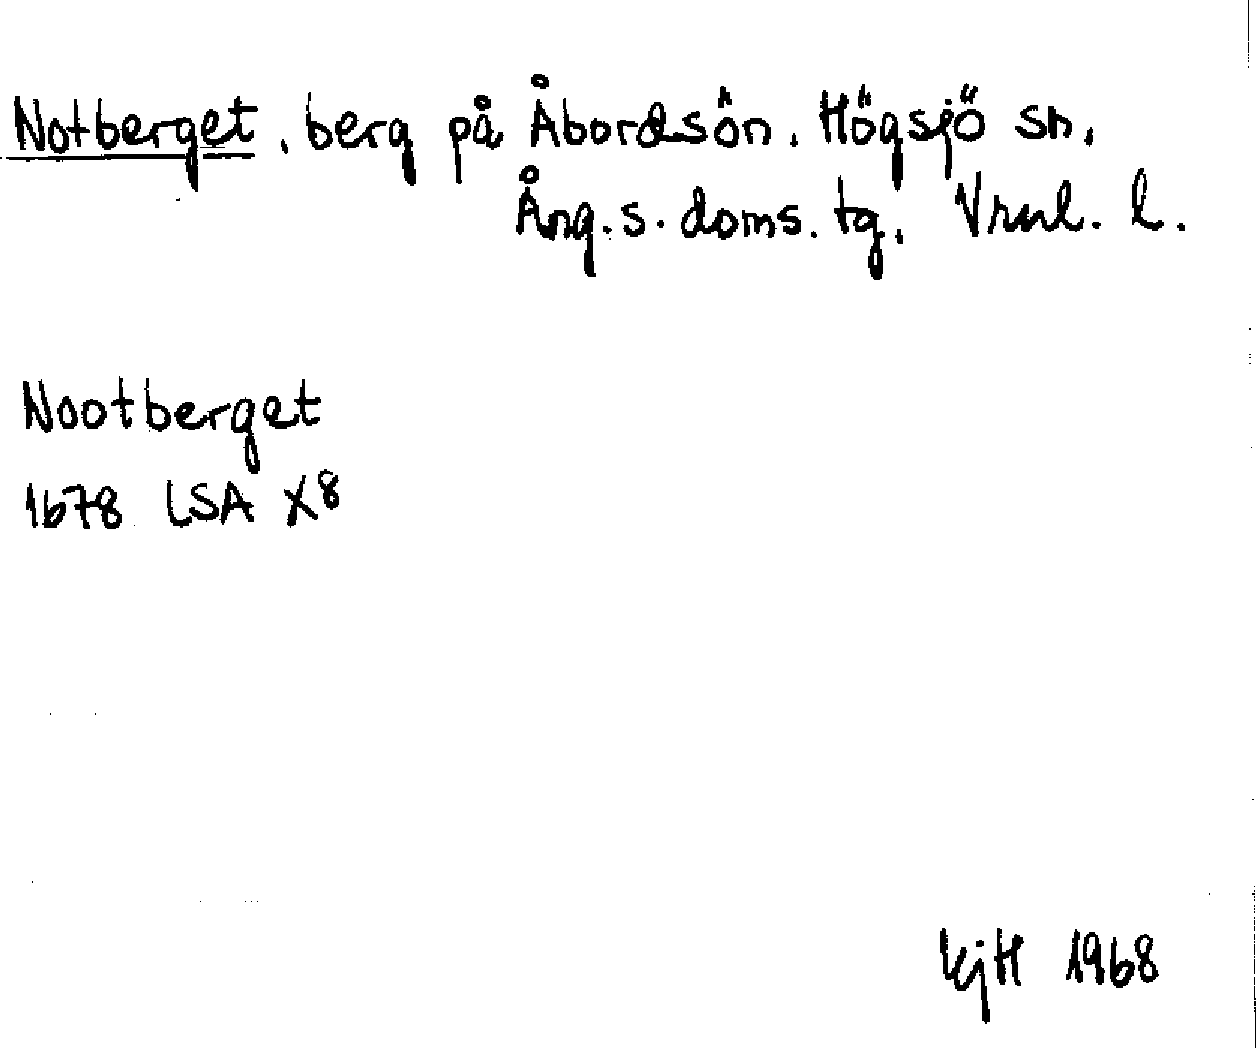 Notberget, berg på Åbordsön. Högsjö sn,
Ång. s. doms. tg, Vrnl. l.
Nootberget
1678 LSA X8
KjH 1968